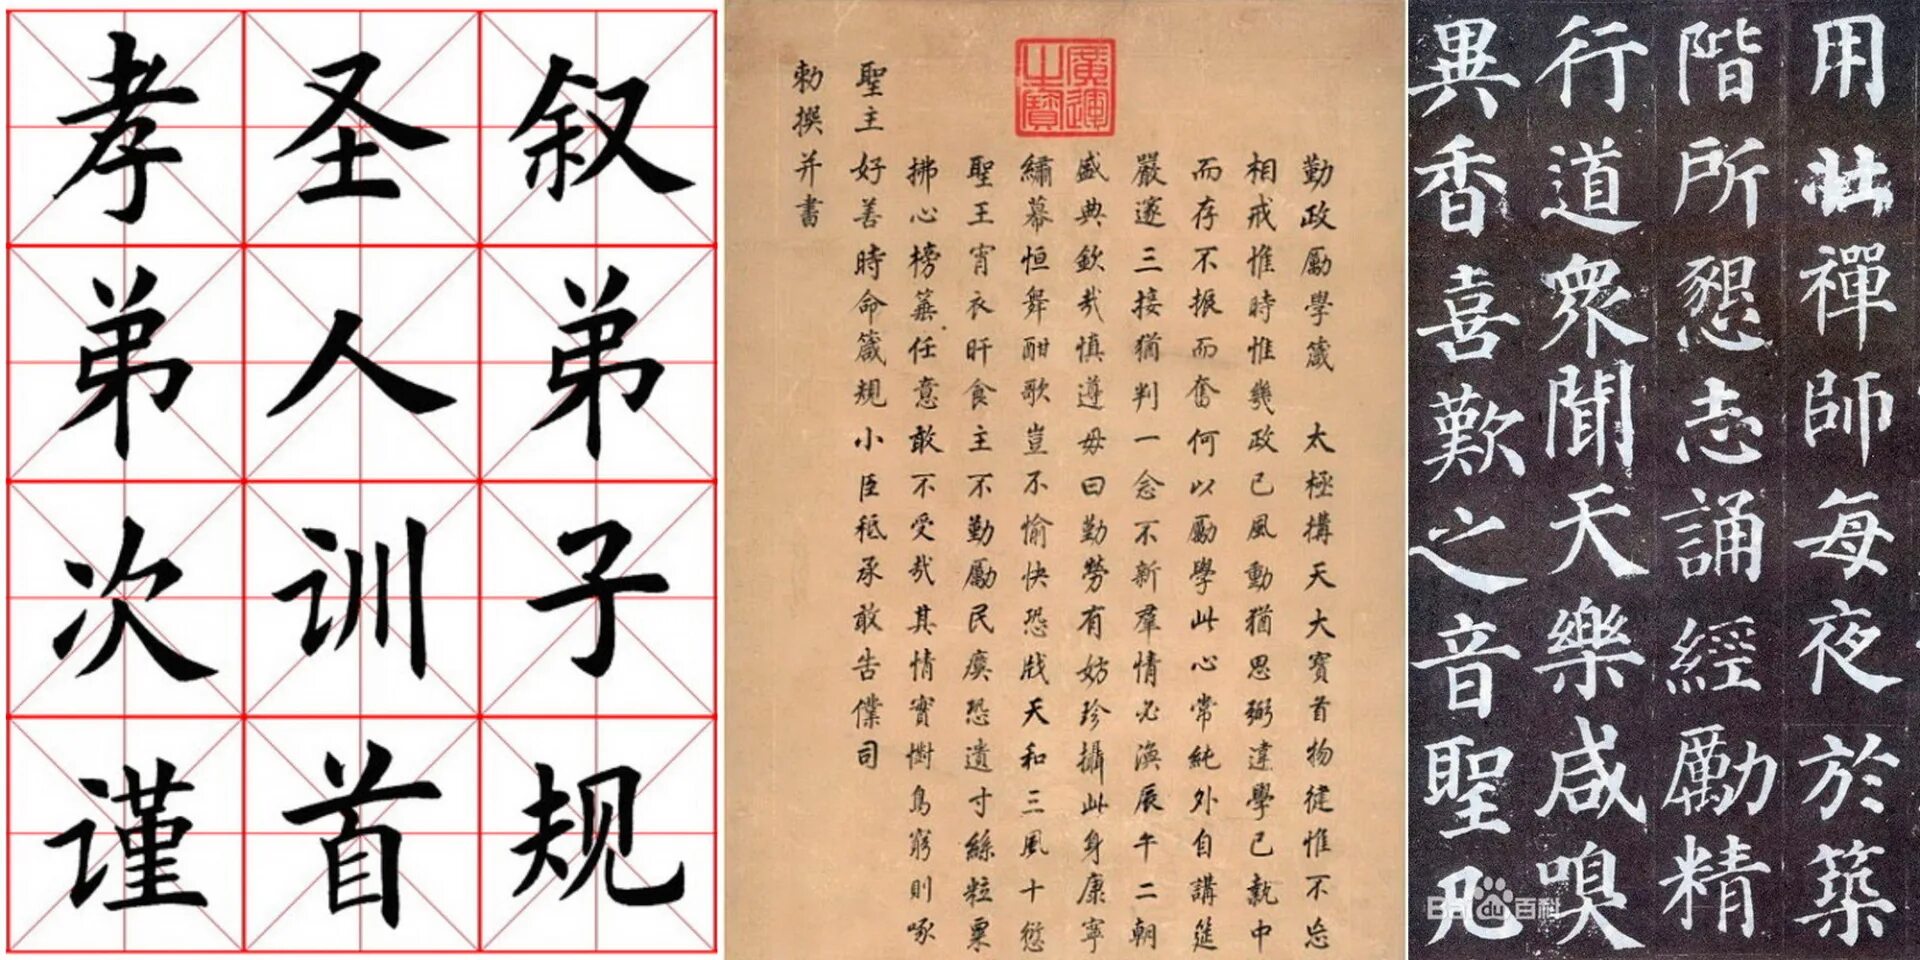 叙弟子规
圣人训首
孝弟次谨
廣運之寶
勤政勵學箴 太極構天大寶首物健惟不
相戒惟時惟幾政已風動猶思弼違學已執中
而存不振而奮何以勵學此心常純外自講筵
嚴邃三接猶判一念不新羣情必渙辰午二朝
盛典欽哉慎遵毋曰勤勞有妨珍攝此身康寧
繡幕恒舞酣歌豈不愉快恐戕天和三風十愆
聖王宵衣旰食主不勤勵民瘼恐遺寸絲粒粟
拂心榜箠任意敢不受哉其情實懟鳥窮則啄
聖主好善時命箴規小臣祗承敢告僕司
勅撰并書
用壯禪師每夜於築
階所懇志誦經勵精
行道衆聞天樂咸嗅
異香喜歎之音聖凡
Baidu百科